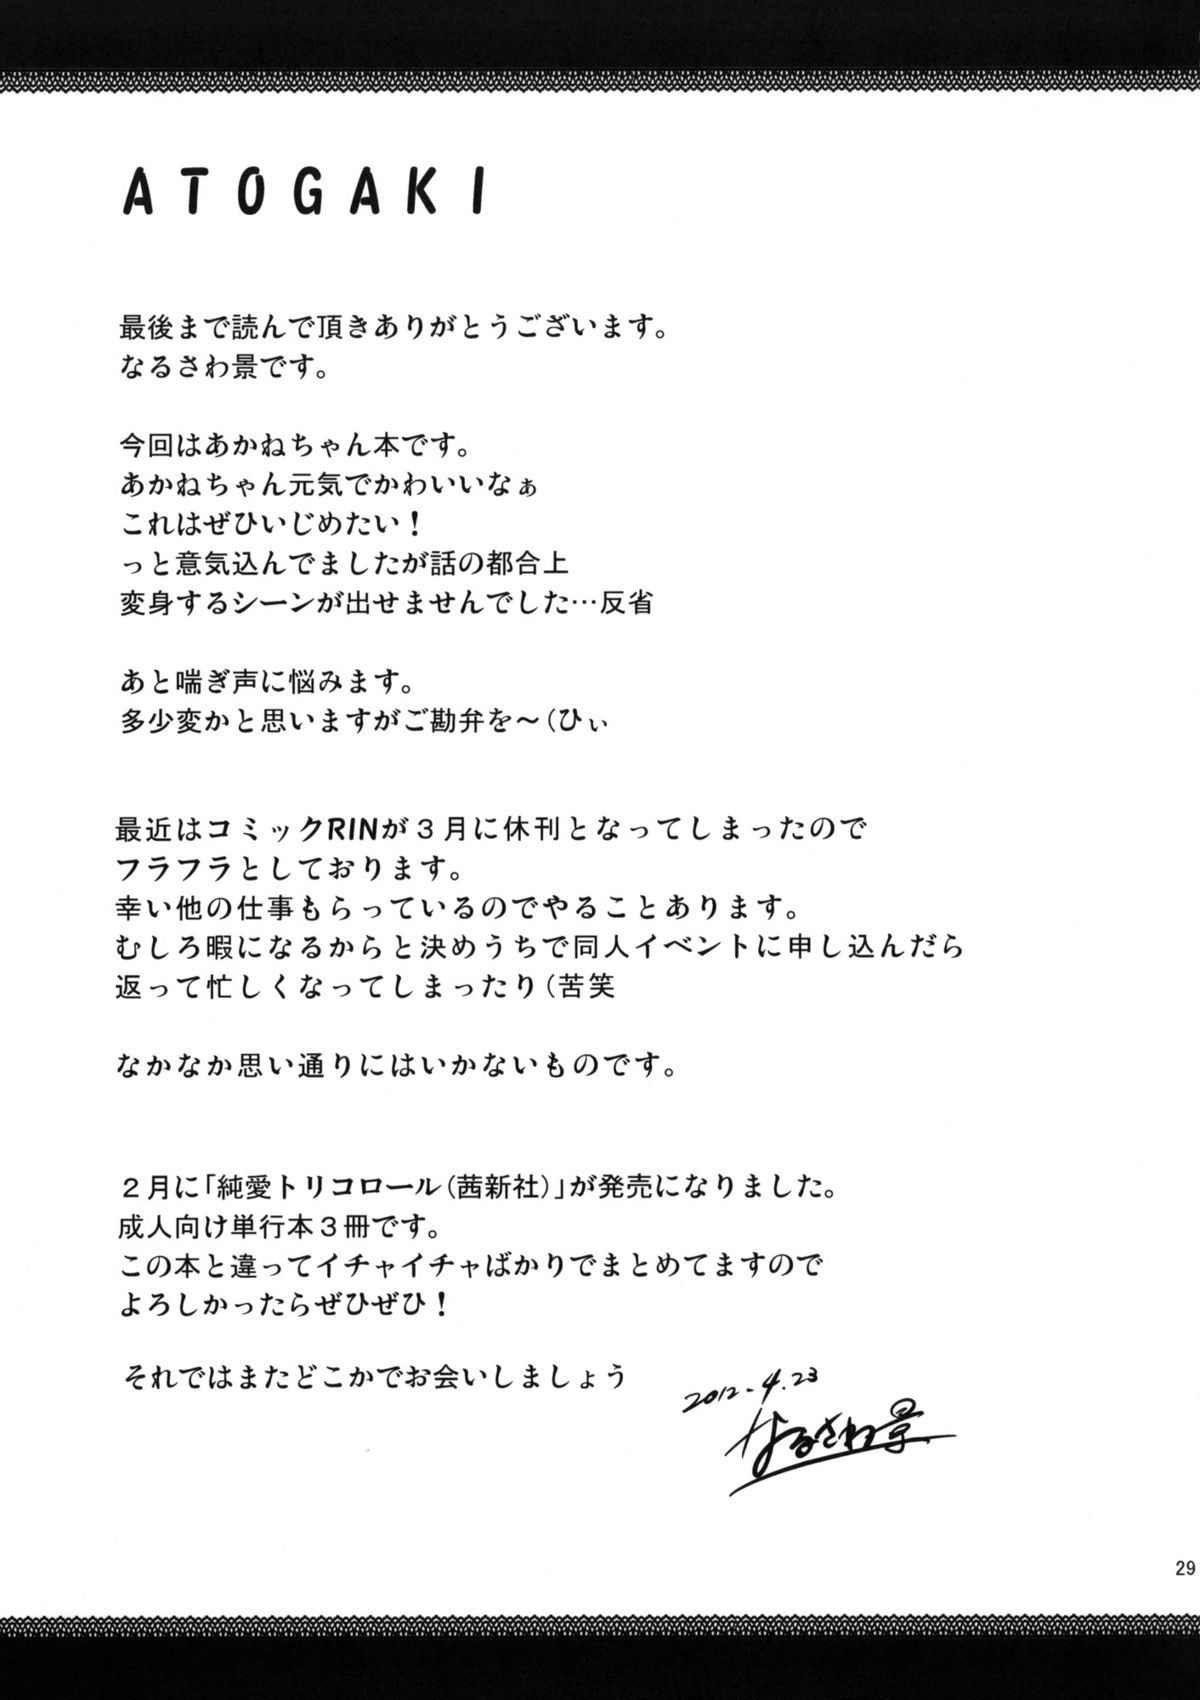 ATOGAKI
最後まで読んで頂きありがとうございます。
なるさわ景です。
今回はあかねちゃん本です。
あかねちゃん元気でかわいいなぁ
これはぜひいじめたい！
っと意気込んでましたが話の都合上
変身するシーンが出せませんでした…反省
あと喘ぎ声に悩みます。
多少変かと思いますがご勘弁を～（ひぃ
最近はコミックRINが３月に休刊となってしまったので
フラフラとしております。
幸い他の仕事もらっているのでやることあります。
むしろ暇になるからと決めうちで同人イベントに申し込んだら
返って忙しくなってしまったり（苦笑
なかなか思い通りにはいかないものです。
２月に「純愛トリコロール（茜新社）」が発売になりました。
成人向け単行本３冊です。
この本と違ってイチャイチャばかりでまとめてますので
よろしかったらぜひぜひ！
それではまたどこかでお会いしましょう
2012-4.23
なるさわ景
29